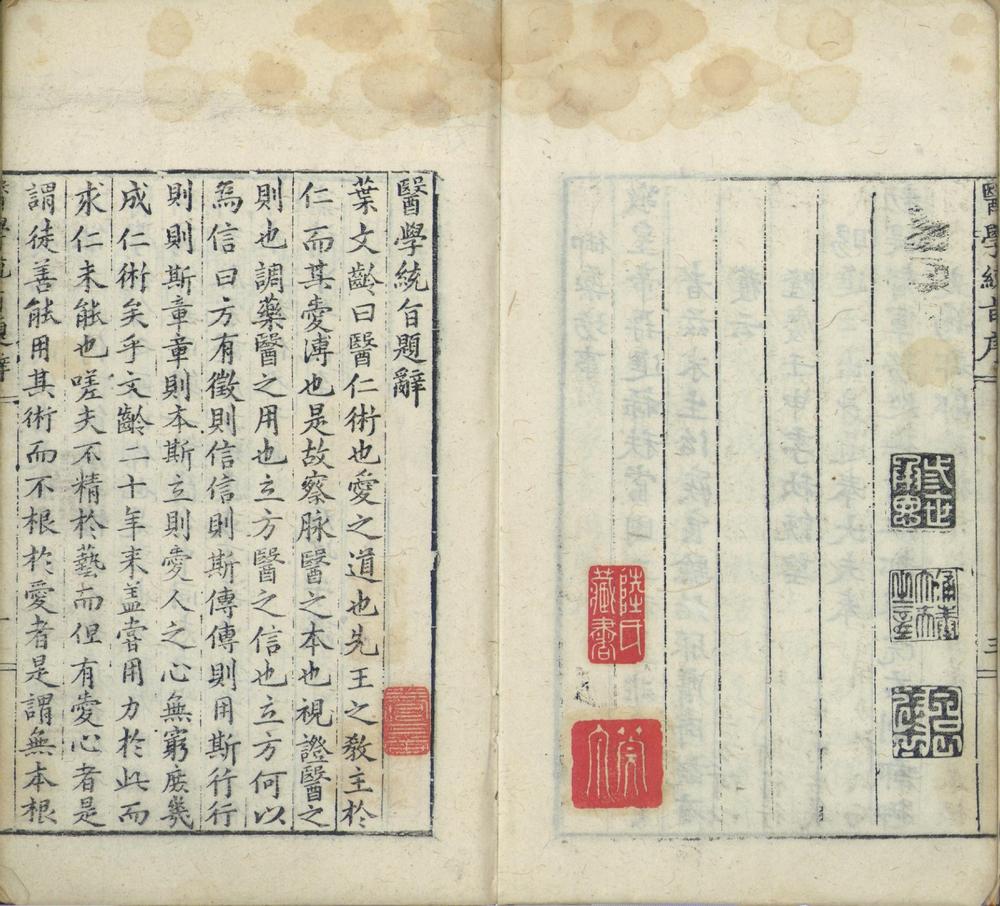 醫學統旨序
三
陸氏藏書
醫學統旨題辭
葉文齡曰醫仁術也愛之道也先王之教主於
仁而其愛溥也是故察脉醫之本也視證醫之
則也調藥醫之用也立方醫之信也立方何以
為信曰方有徵則信信則斯傳傳則用斯行行
則則斯章章則本斯立則愛人之心無窮庶幾
成仁術矣乎文齡二十年來盖嘗用力於此而
求仁未能也嗟夫不精於藝而但有愛心者是
謂徒善能用其術而不根於愛者是謂無本根